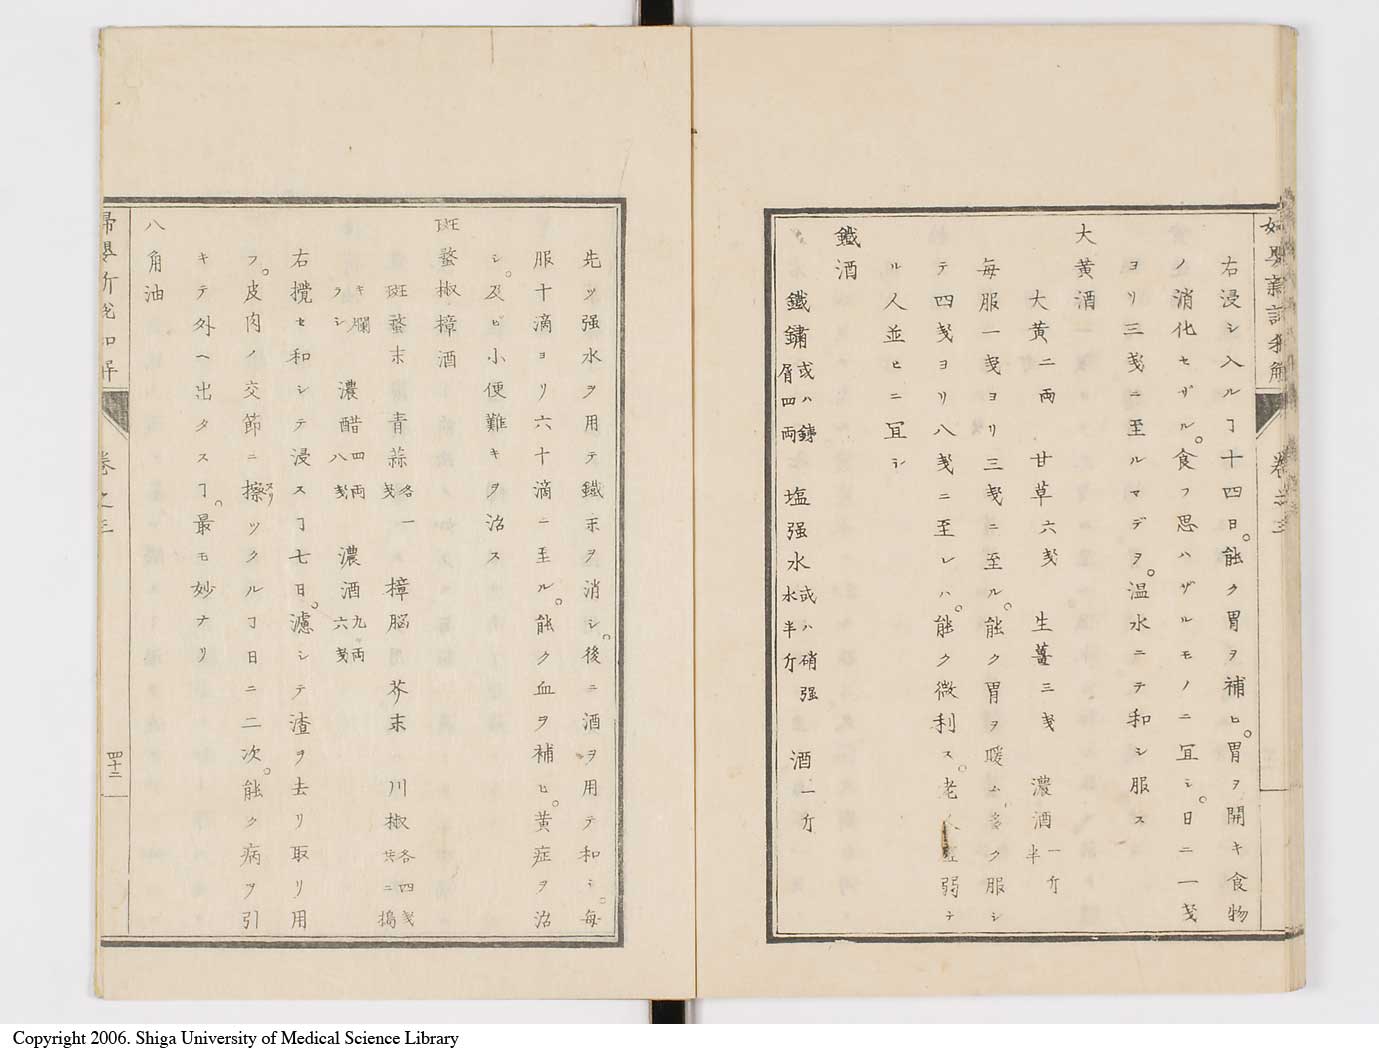 婦嬰新説和解
卷之三
右浸シ入ルヿ十四日。能ク胃ヲ補ヒ。胃ヲ開キ食物
ノ消化セザル。食フ思ハザルモノニ冝シ。日ニ一戔
ヨリ三戔ニ至ルマデヲ。温水ニテ和シ服ス
大黄酒
大黄二両 甘草六戔 生薑三戔 濃酒一斤半
毎服一戔ヨリ三戔ニ至ル。能ク胃ヲ暖ム多ク服シ
テ四戔ヨリ八戔ニ至レハ。能ク微利ス。老人虚弱テ
ル人並ヒニ冝シ
鐵酒
鐵鏽或ハ鐵屑四両 塩强水或ハ硝强水半斤 酒一斤
先ツ强水ヲ用テ鐵末ヲ消シ。後ニ酒ヲ用テ和シ。毎
服十滴ヨリ六十滴ニ至ル。能ク血ヲ補ヒ。黄症ヲ治
シ。及ビ小便難キヲ治ス
斑蝥椒樟酒
斑蝥末 青蒜各一戔 樟脳 芥末 川椒各四戔共ニ搗
キ爛ラシ 濃醋四両八戔 濃酒九両六戔
右攪セ和シテ浸スヿ七日。濾シテ渣ヲ去リ取リ用
フ。皮肉ノ交節ニ擦リツクルヿ日ニ二次。能ク病ヲ引
キテ外ヘ出タスヿ。最モ妙ナリ
八角油
婦嬰新説和解
卷之三
四十二
Copyright 2006. Shiga University of Medical Science Library